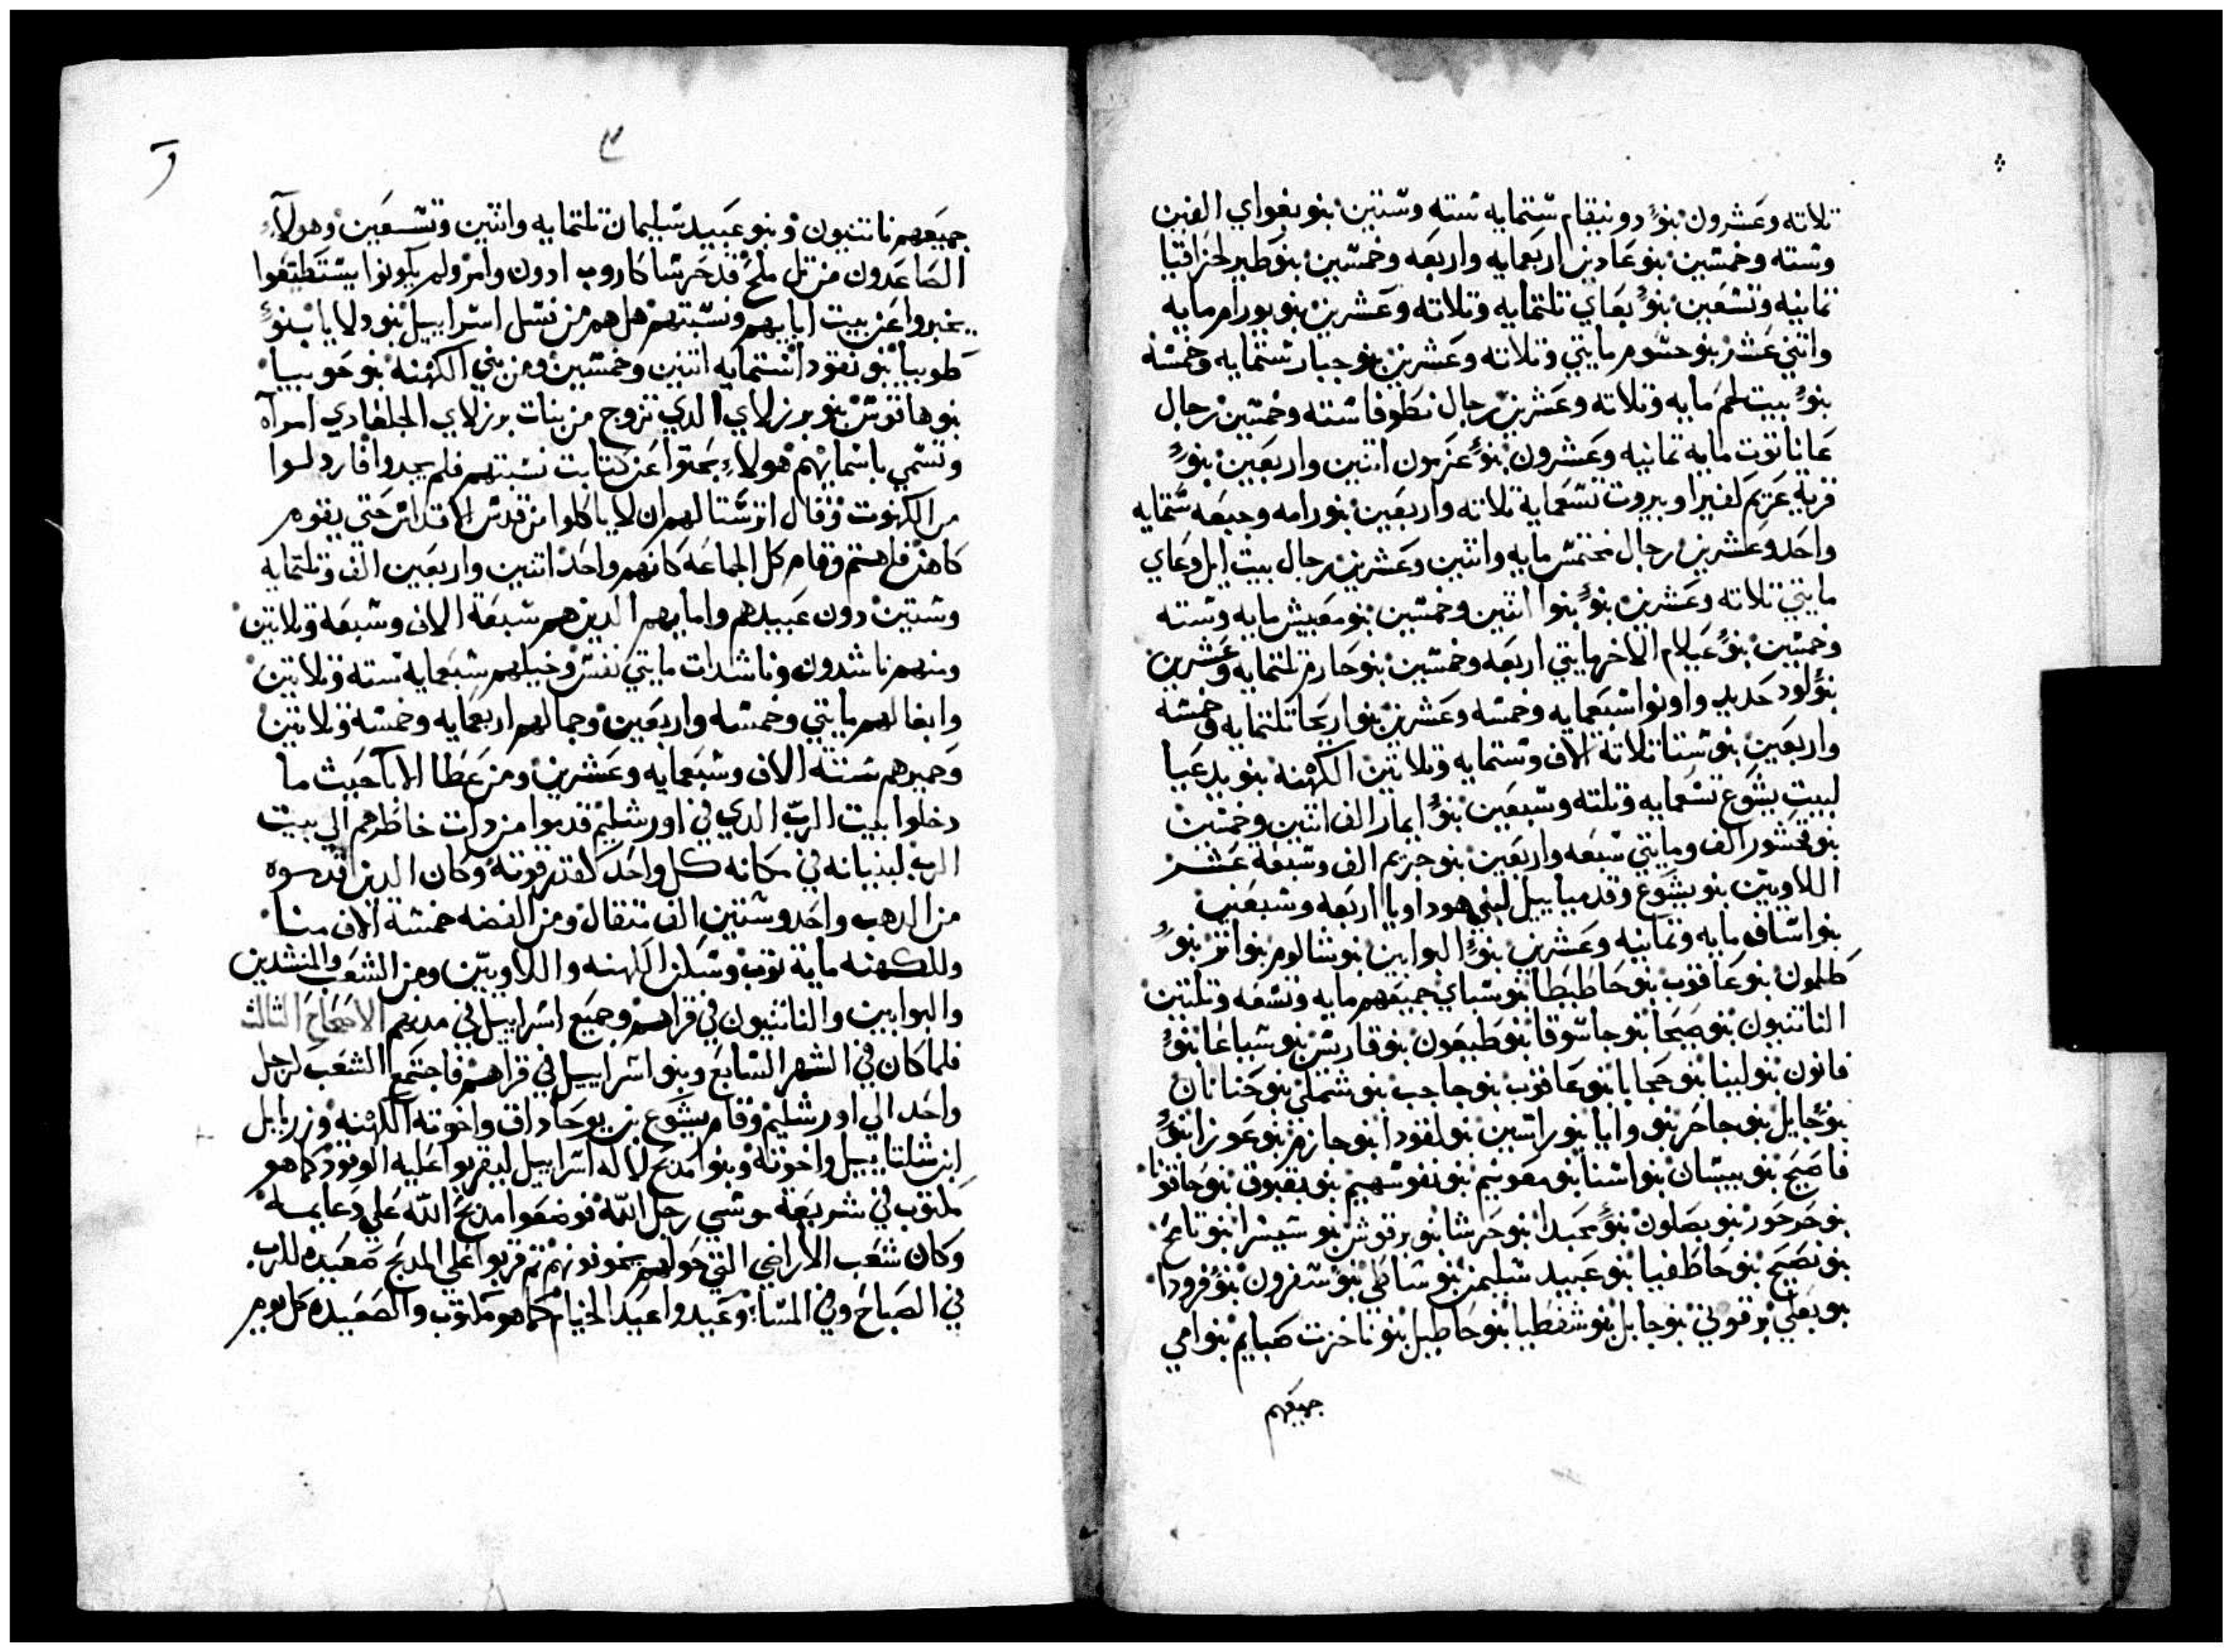 تلاته وعشرون بنو دونيقام ستمايه سته وستين بنو بغواي الفين
وسته وخمسين بنو عادين اربعمايه واربعه وخمسين بنو طير لحزاقيا
تمانيه وتسعين بنو بعاي تلتمايه وتلاته وعشرين بنو يورام مايه
واتني عشر بنو حسوم مايتي وتلاته وعشرين بنو جبار ستمايه وخمسه
بنو بيت لحم مايه وتلاته وعشرين رجال نطوفا سته وخمسين رجال
عاناتوت مايه تمانيه وعشرون بنو عزموت اتنين واربعين بنو
قرية عزيم لفيرا وبيروت تسعماية تلاته واربعين بنو رامه وجبعه ستمايه
واحد وعشرين رجال مختمس مايه واتنين وعشرين رجال بيت ايل وعاي
مايتي تلاته وعشرين بنو بنوا اتنين وخمسين بنو مغبيش مايه وسته
وخمسين بنو عيلام الاخر مايتي اربعه وخمسين بنو حارم تلتمايه وعشرين
بنو لود حديد واونوا سبعمايه وخمسه وعشرين بنو اريحا تلتمايه وخمسه
واربعين بنو سنا تلاتة الاف وستمايه وتلاتين الكهنه بنو يدعيا
لبيت يشوع تسعمايه وتلته وسبعين بنو ايمار الف اتنين وخمسين
بنو فحشور الف ومايتي سبعه واربعين بنو جريم الف وسبعة عشر
اللاويين بنو يشوع وقدمياييل لبني هوداويا اربعه وسبعين
بنو اساف مايه وتمانيه وعشرين بنو البوابين بنو شالوم بنو اتر بنو
طلمون بنو عاقوب بنو حاطيطا بنو سباي جميعهم مايه وتسعه وتلتين
الناتنيون بنو صيحا بنو حاسوفا بنو طبعون بنو قاريس بنو سياغا بنو
فانون بنو لبينا بنو حجابا بنو عاقوب بنو حاجب بنو شملي بنو حنانان
بنو جايل بنو جاحر بنو وايا بنو راتسين بنو لفودا بنو حازم بنو عوزا بنو
فاصيح بنو بيسان بنو اسنا بنو معونيم بنو نفوسهيم بنو بقبوق بنو حاقوا
بنو حرحور بنو بصلون بنو محيدا بنو حرشا بنو برقوش بنو سيسرا بنو تامح
بنو نصيح بنو حاطفيا بنو عبيد سليمن بنو ساطي بنو سفرون بنو فرودا
بنو يعلي برقوني بنو جابل بنو شفطيا بنو حاطيل بنو تاخرت صبايم بنو امي
جميعهم
جميعهم ناتنيون وبنو عبيد سليمان تلتمايه واتنين وتسعين وهولاء
الصاعدون من تل ملح قد حرشا كاروب ادون وامر ولم يكونوا يستطيعوا
يخبروا عن بيت ابايهم ونسبتهم هل هم من نسل اسراييل بنو دلايا بنو
طوبيا بنو نقودا ستمايه اتنين وخمسين ومن بني الكهنه بنو حوبيا
بنو هاقوش بنو برزلاي الدي تزوج من بنات برزلاي الجلعادي امراه
وتسمي باسمايهم هولاء بحتوا عن كتابت نسبتهم فلم يجدوا فاردلوا
من الكهنوت وقال اترستا لهم ان لا ياكلوا من قدس الاقداس حتي يقوم
كاهن فاهتم وقام كل الجماعه كانهم واحد اتنين واربعين الف وتلتمايه
وستين دون عبيدهم وامايهم الدين هم سبعة الاف وسبعه وتلاتين
ومنهم ناشدون وناشدات مايتي نفس وخيلهم سبعمايه سته وتلاتين
وابغالهم مايتي وخمسه واربعين وجمالهم اربعمايه وخمسه وتلاتين
وحميرهم ستة الاف وسبعمايه وعشرين ومن عطا الابا حيث ما
دخلوا بيت الرب الدي في اورشليم قدموا من دات خاطرهم الي بيت
الرب لبنيانه في مكانه كل واحد كقدر قوته وكان الدين اقدسوه
من الدهب واحد وستين الف متقال ومن الفضه خمسة الاف منا
وللكهنه ماية توب وسكن الكهنه واللاويين ومن الشعب والمنشدين
والبوابين والناتنيون في قراهم وجميع اسراييل في مدنهم الاصحاح الثالث
فلما كان في الشهر السابع وبنو اسراييل في قراهم فاجتمع الشعب لرجل
واحد الي اورشليم وقام يشوع بن يوحاداف واخوته الكهنه وزربابل
ابن شلتاييل واخوته وبنوا مدبح لاله اسراييل ليقربوا عليه الوقود كما هو
مكتوب في شريعة موسي رجل الله فوضعوا مدبح الله علي دعايمه
وكان شعب الاراضي التي حولهم يخوفونهم تم قربوا علي المدبح صعيده للرب
في الصباح وفي المسا وعيدوا عيد الخيام كما هو مكتوب والصعيده كل يوم